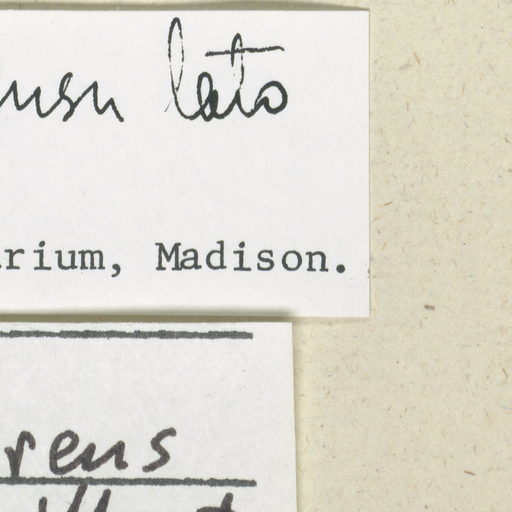 ensu lato
arium, Madison.
rens